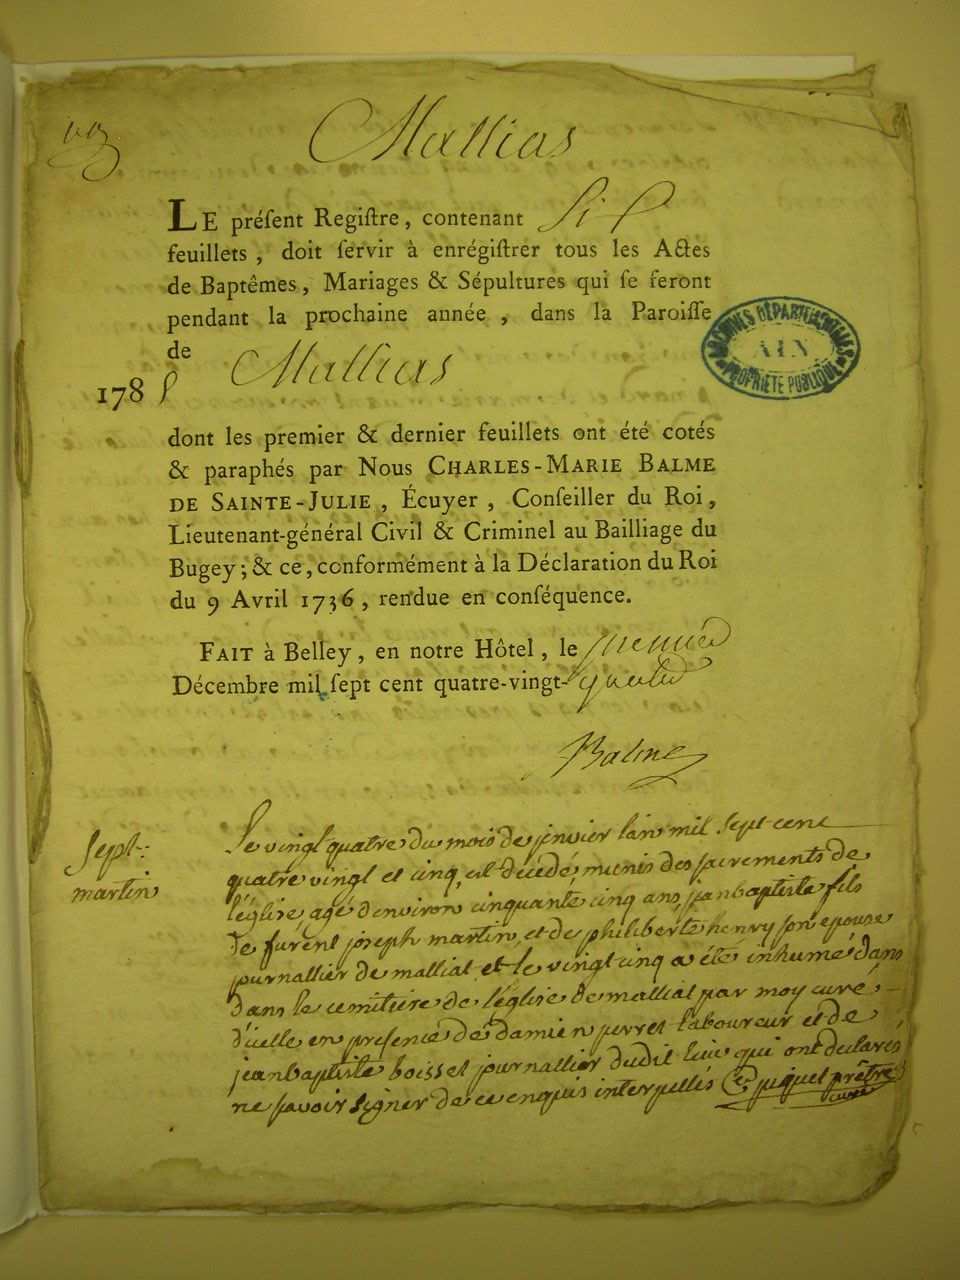 Mallias
LE préſent Regiſtre, contenant Six
feuillets, doit ſervir à enrégiſtrer tous les Actes
de Baptêmes, Mariages & Sépultures qui ſe feront
pendant la prochaine année, dans la Paroiſſe
de Mallias
1785
ARCHIVES DÉPARTEMENTALES
AIN
PROPRIÉTÉ PUBLIQUE
dont les premier & dernier feuillets ont été cotés
& paraphés par Nous CHARLES-MARIE BALME
DE SAINTE-JULIE, Écuyer, Conſeiller du Roi,
Lieutenant-général Civil & Criminel au Bailliage du
Bugey; & ce, conformément à la Déclaration du Roi
du 9 Avril 1736, rendue en conſéquence.
FAIT à Belley, en notre Hôtel, le premier
Décembre mil ſept cent quatre-vingt-quatre
Balme
Sept:
martin
Le vingt quatre du mois de jenvier lan mil sept cent
quatre vingt et cinq, est décédé munis des sacrements de
l'église, agé d'environ cinquante cinq ans, jeanbaptiste fils
de furent joseph martin, et de philiberte henry son epouse
journallier de malliat et le vingt cinq a été inhumé dans
dans le cemitiere de l'église de malliat par moy curé
d'icelle en presence de damien perret laboureur et de
jeanbaptiste boisset journallier dudit lieu qui ont declarés
ne savoir signer de ce enquis interpellés puiquet prêtre
curé